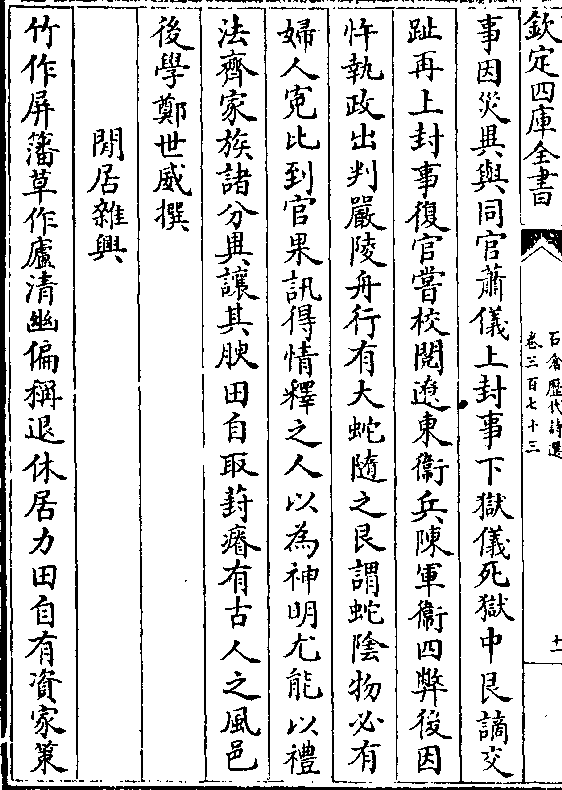 欽定四庫全書
石倉歷代詩選
卷三百七十三
十一
事因災異與同官蕭儀上封事下獄儀死獄中艮謫交
趾再上封事復官嘗校閱遼東衞兵陳軍衞四弊後因
忤執政出判嚴陵舟行有大蛇隨之艮謂蛇陰物必有
婦人寃比到官果訊得情釋之人以為神明尤能以禮
法齊家族諸分異讓其腴田自取葑瘠有古人之風邑
後學鄭世威撰
閒居雜興
竹作屏藩草作廬清幽偏稱退休居力田自有資家策